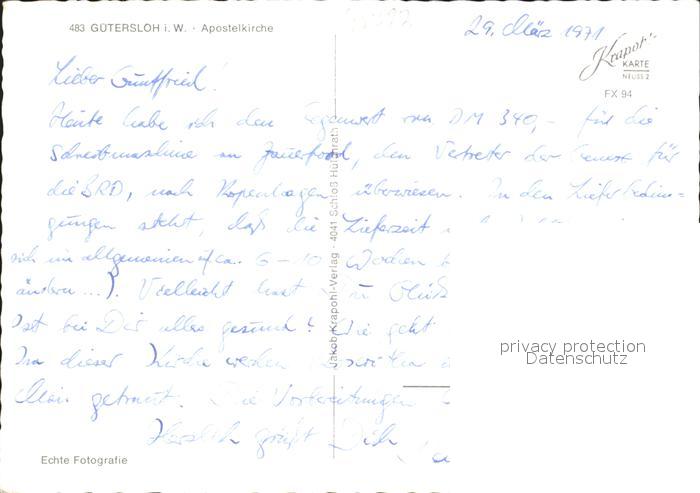 483 GÜTERSLOH i. W. · Apostelkirche
29. März 1971
Krapohl
KARTE
NEUSS 2
FX 94
Lieber
Heute habe ich den Gegenwert von DM 340,- für die
Schreibmaschine an den Vertreter der für
die BRD, nach Kopenhagen überwiesen. In den Lieferbedin=
gungen steht, daß die Lieferzeit
sich im allgemeinen auf ca. 6-10 Wochen
ändern...). Vielleicht hast Du Glück
Ist bei Dir alles gesund? Wie geht
In dieser Kirche werden
Mai getraut. Die Vorbereitungen
Herzlich grüßt Dich
Jakob Krapohl-Verlag · 4041 Schloß Hülchrath
privacy protection
Datenschutz
Echte Fotografie